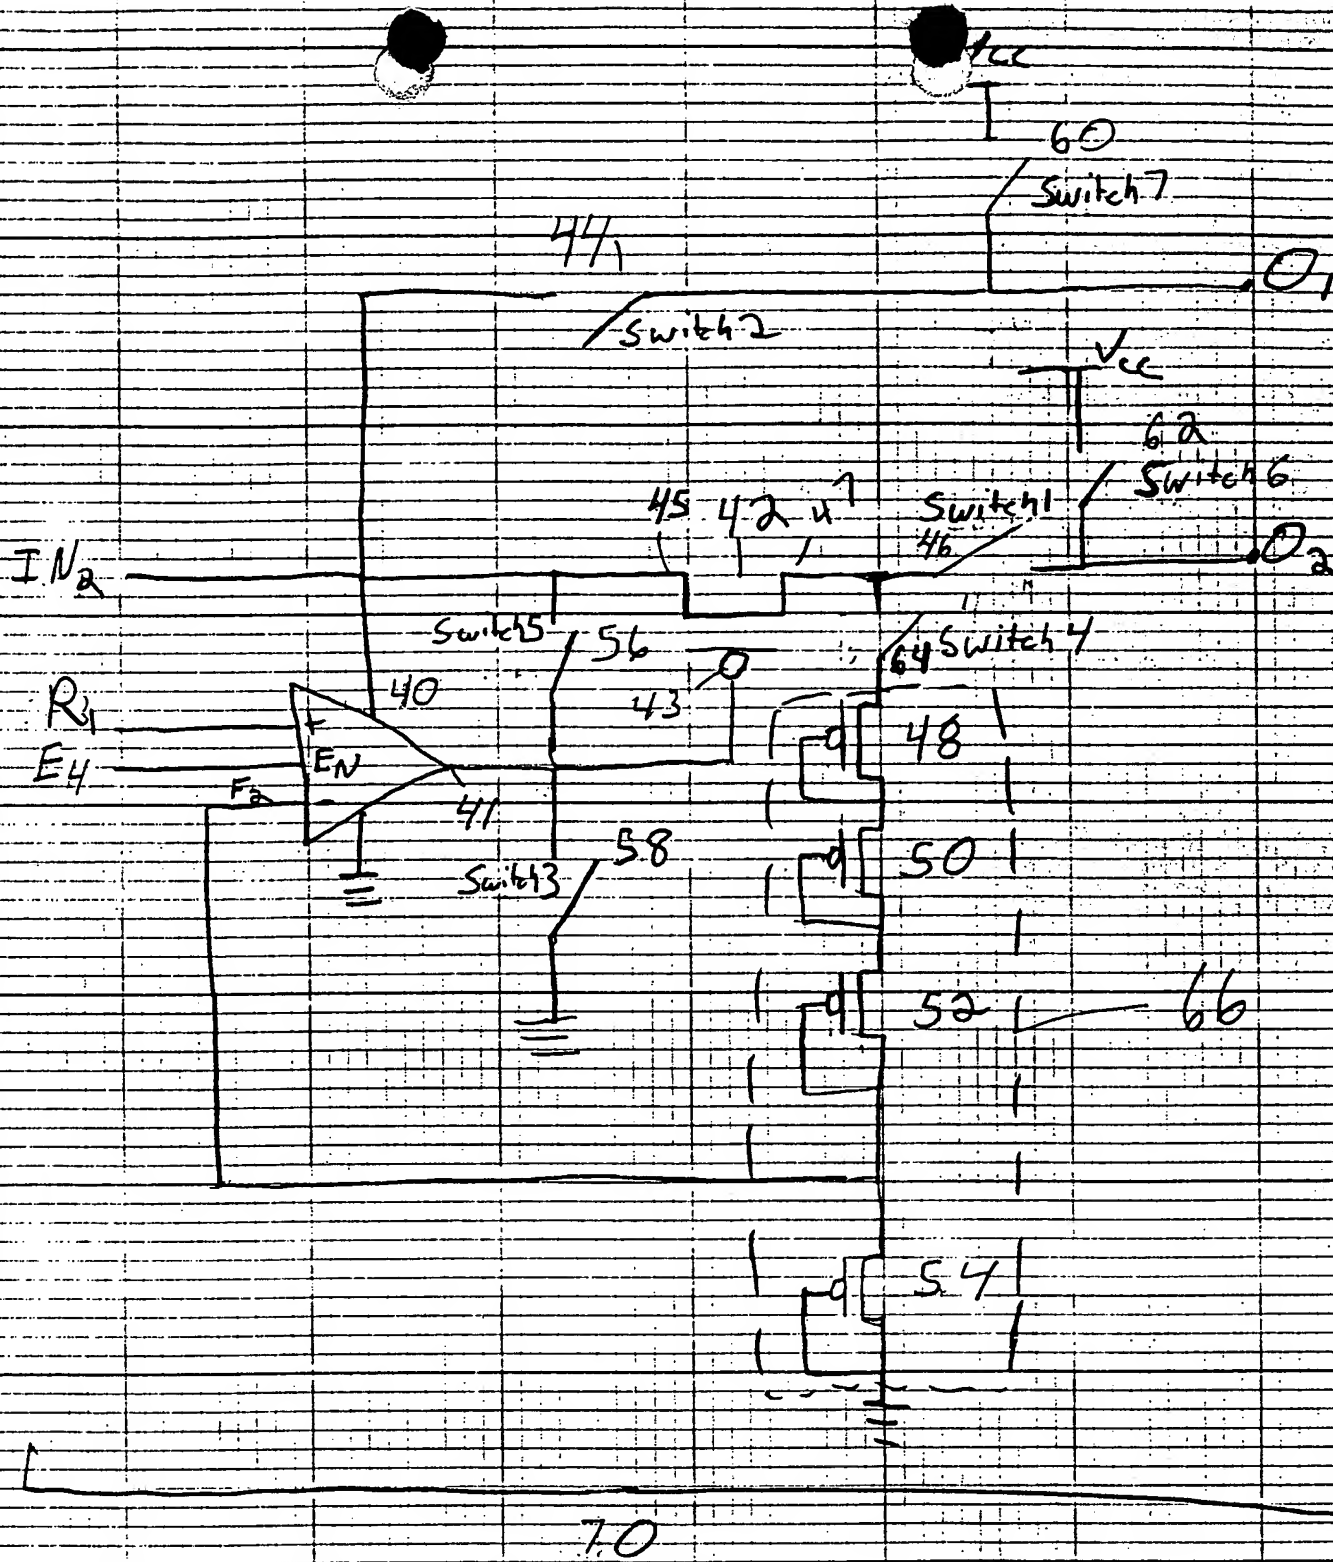 Vcc
60
Switch 7
44
O1
Switch 2
Vcc
62
Switch 6
45 42 47
Switch 1
46
IN2
O2
Switch 5 56
64 Switch 4
43
R1
40
+
48
E4
EN
F2
-
41
58
50
Switch 3
52
66
54
70